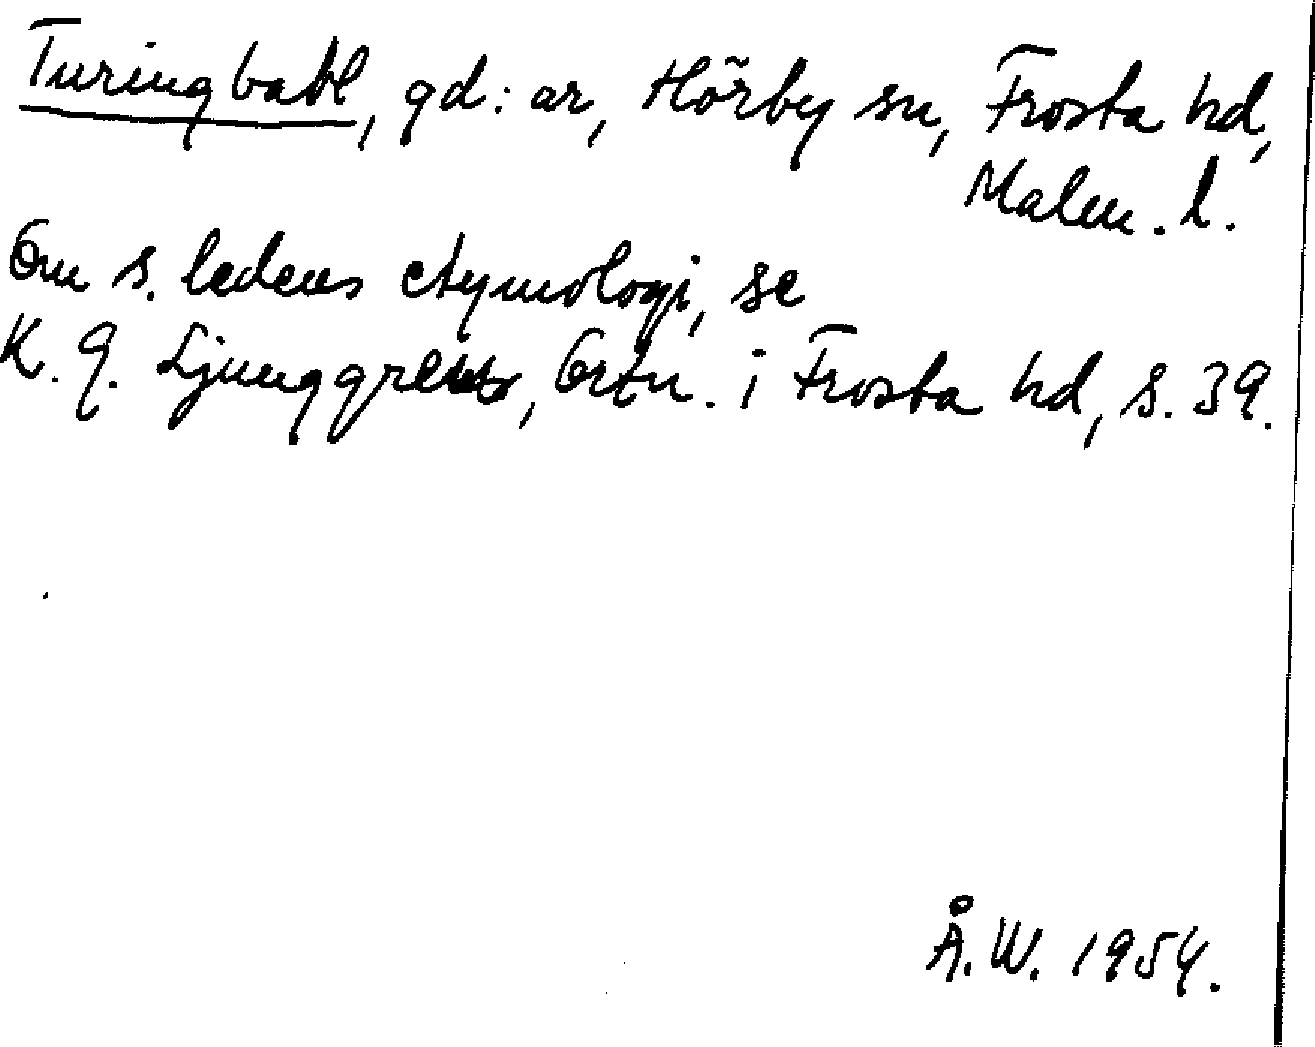 Turingbabl, gd:ar, Hörby sn, Frosta hd,
Malm. l.
Om s. ledens etymologi, se
K. G. Ljunggren, Ortn. i Frosta hd, s. 39.
Å.W. 1954.